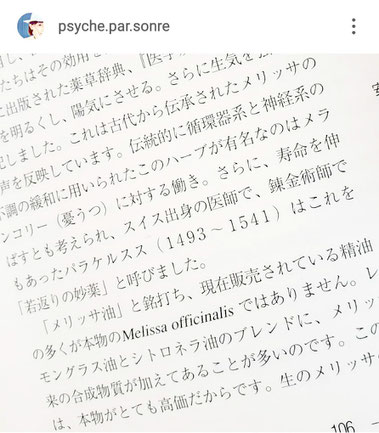 psyche.par.sonre
用し、
たちはその効用
に出版された薬草辞典、『医学
を明るくし、陽気にさせる。さらに生気を
しました。これは古代から伝承されたメリッサの
声を反映しています。伝統的に循環器系と神経系の
調の緩和に用いられたこのハーブが有名なのはメラ
ンコリー（憂うつ）に対する働き。さらに、寿命を伸
ばすとも考えられ、スイス出身の医師で、錬金術師で
もあったパラケルスス（1493～1541）はこれを
「若返りの妙薬」と呼びました。
「メリッサ油」と銘打ち、現在販売されている精油
の多くが本物のMelissa officinalis ではありません。レ
モングラス油とシトロネラ油のブレンドに、メリッ
来の合成物質が加えてあることが多いのです。この
は、本物がとても高価だからです。生のメリッサ
106